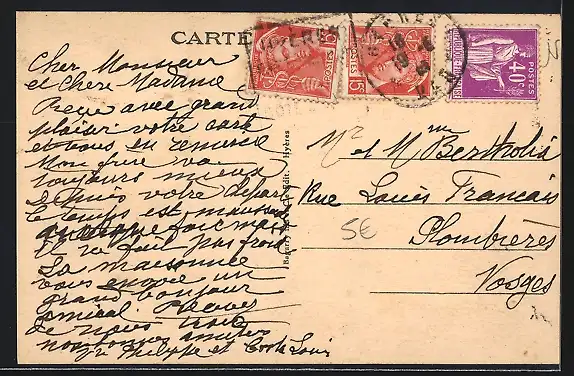 CARTE
Cher Monsieur
et Chère Madame
Reçu avec grand
plaisir votre carte
et vous en remercie
Mon père va
toujours mieux
depuis votre départ
le temps est mauvais
il ne fait pas froid
La maisonnée
vous envoie un
grand bonjour
amical. Recevez
de nous trois
nos bonnes amitiés
Philippe et Louis
HYÈRES
POSTES
15c
POSTES
40c
Mr et Mme Bertholis
Rue Louis Francais
5€
Plombières
Vosges
Edit. Hyères